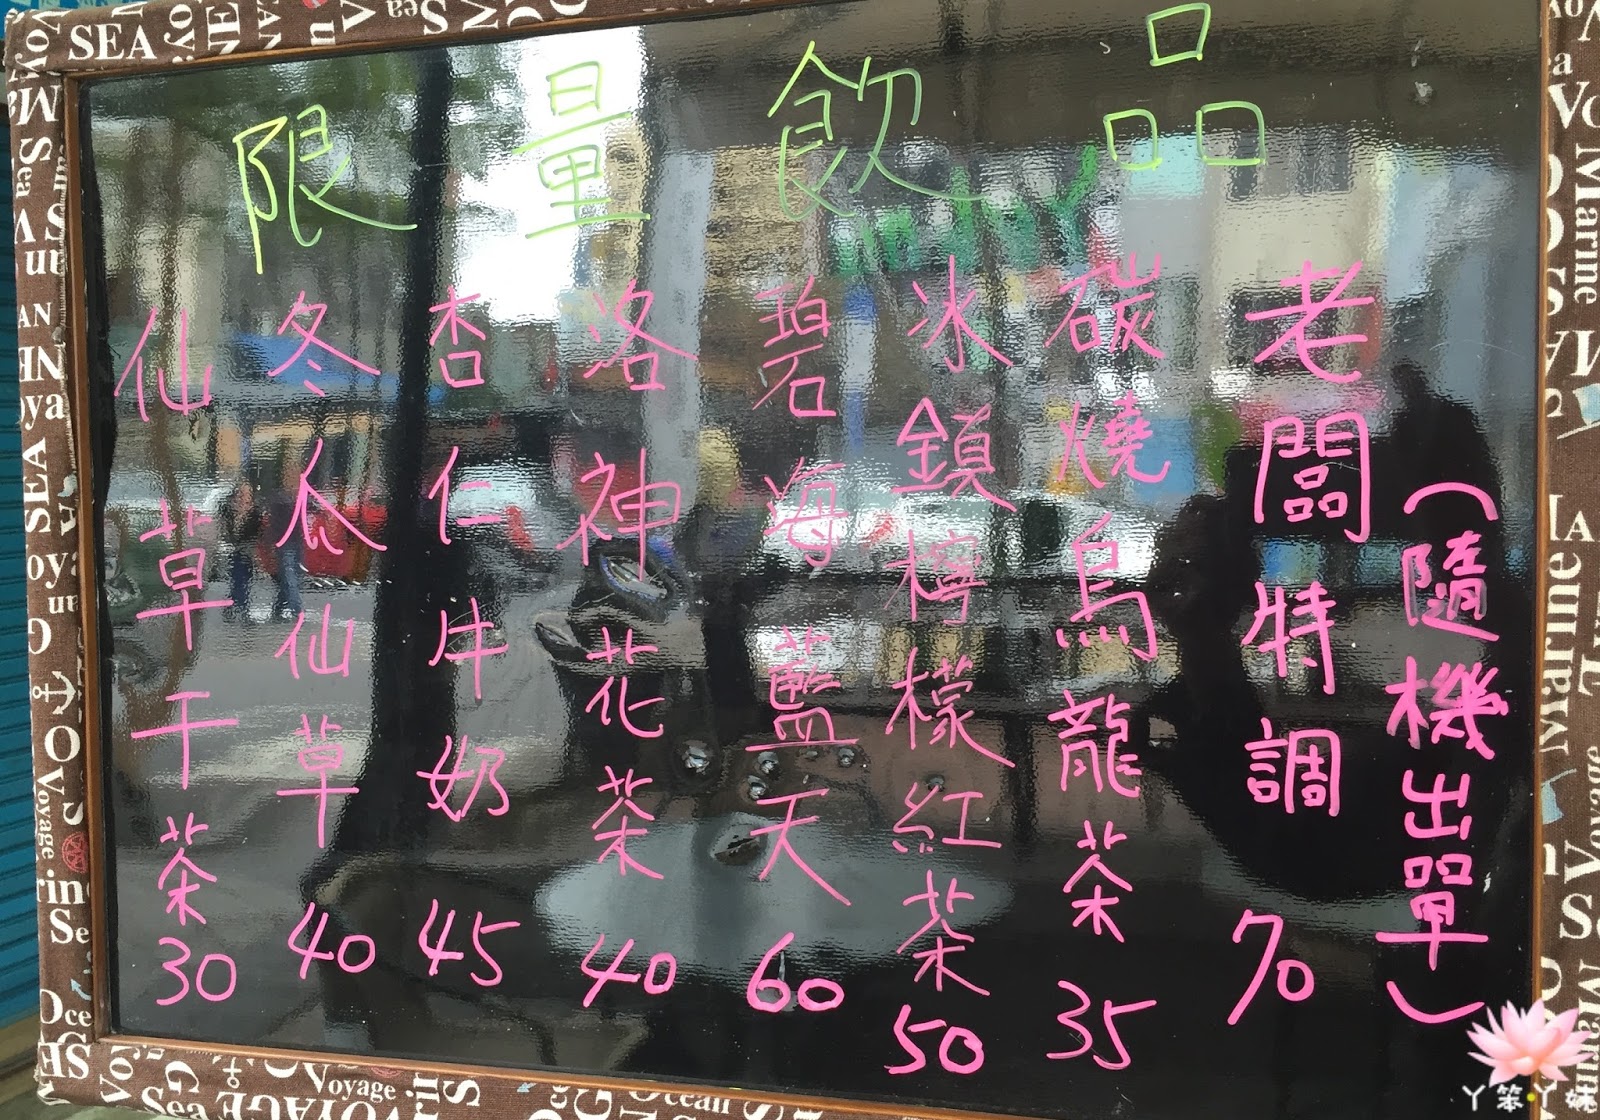 限量飲品
(隨機出單)
老闆特調 70
碳燒烏龍茶 35
冰鎖檸檬紅茶 50
碧海藍天 60
洛神花茶 40
杏仁牛奶 45
冬瓜仙草 40
仙草干茶 30
SEA
Voyage
Ocean
Marine
Sea
ㄚ笨ㄚ妹